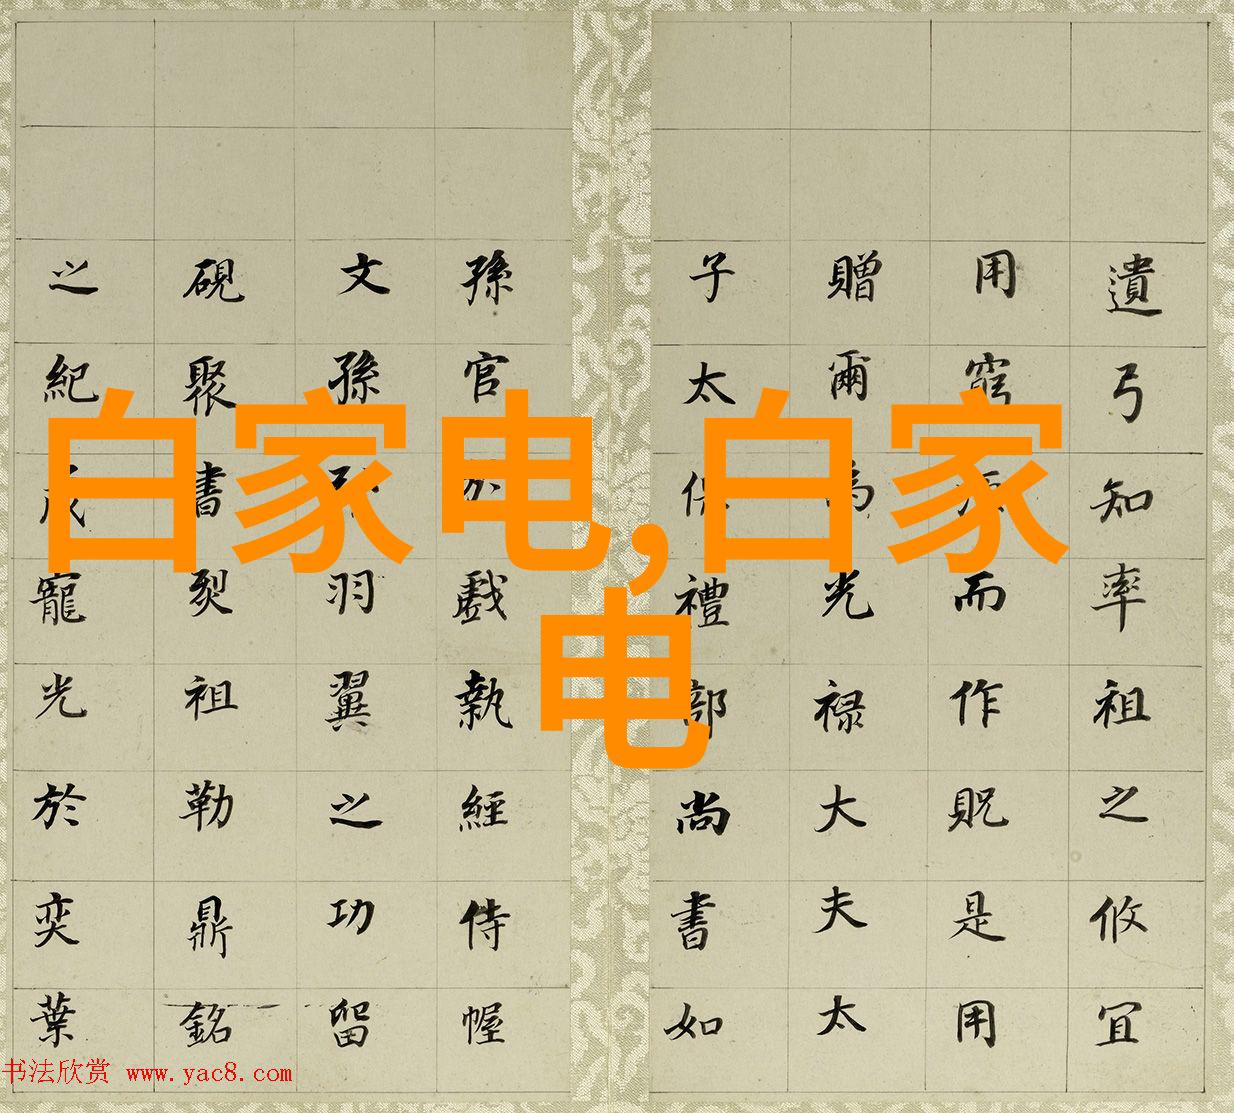 白家电,白家
电
遺弓知率祖之攸宜
用而作貺是用
贈爾為光禄大夫太
子太保禮部尚書如
孫官戲執經侍幄
文孫羽翼之功留
硯聚書烈祖勒鼎銘
之紀寵光於奕葉
书法欣赏 www.yac8.com